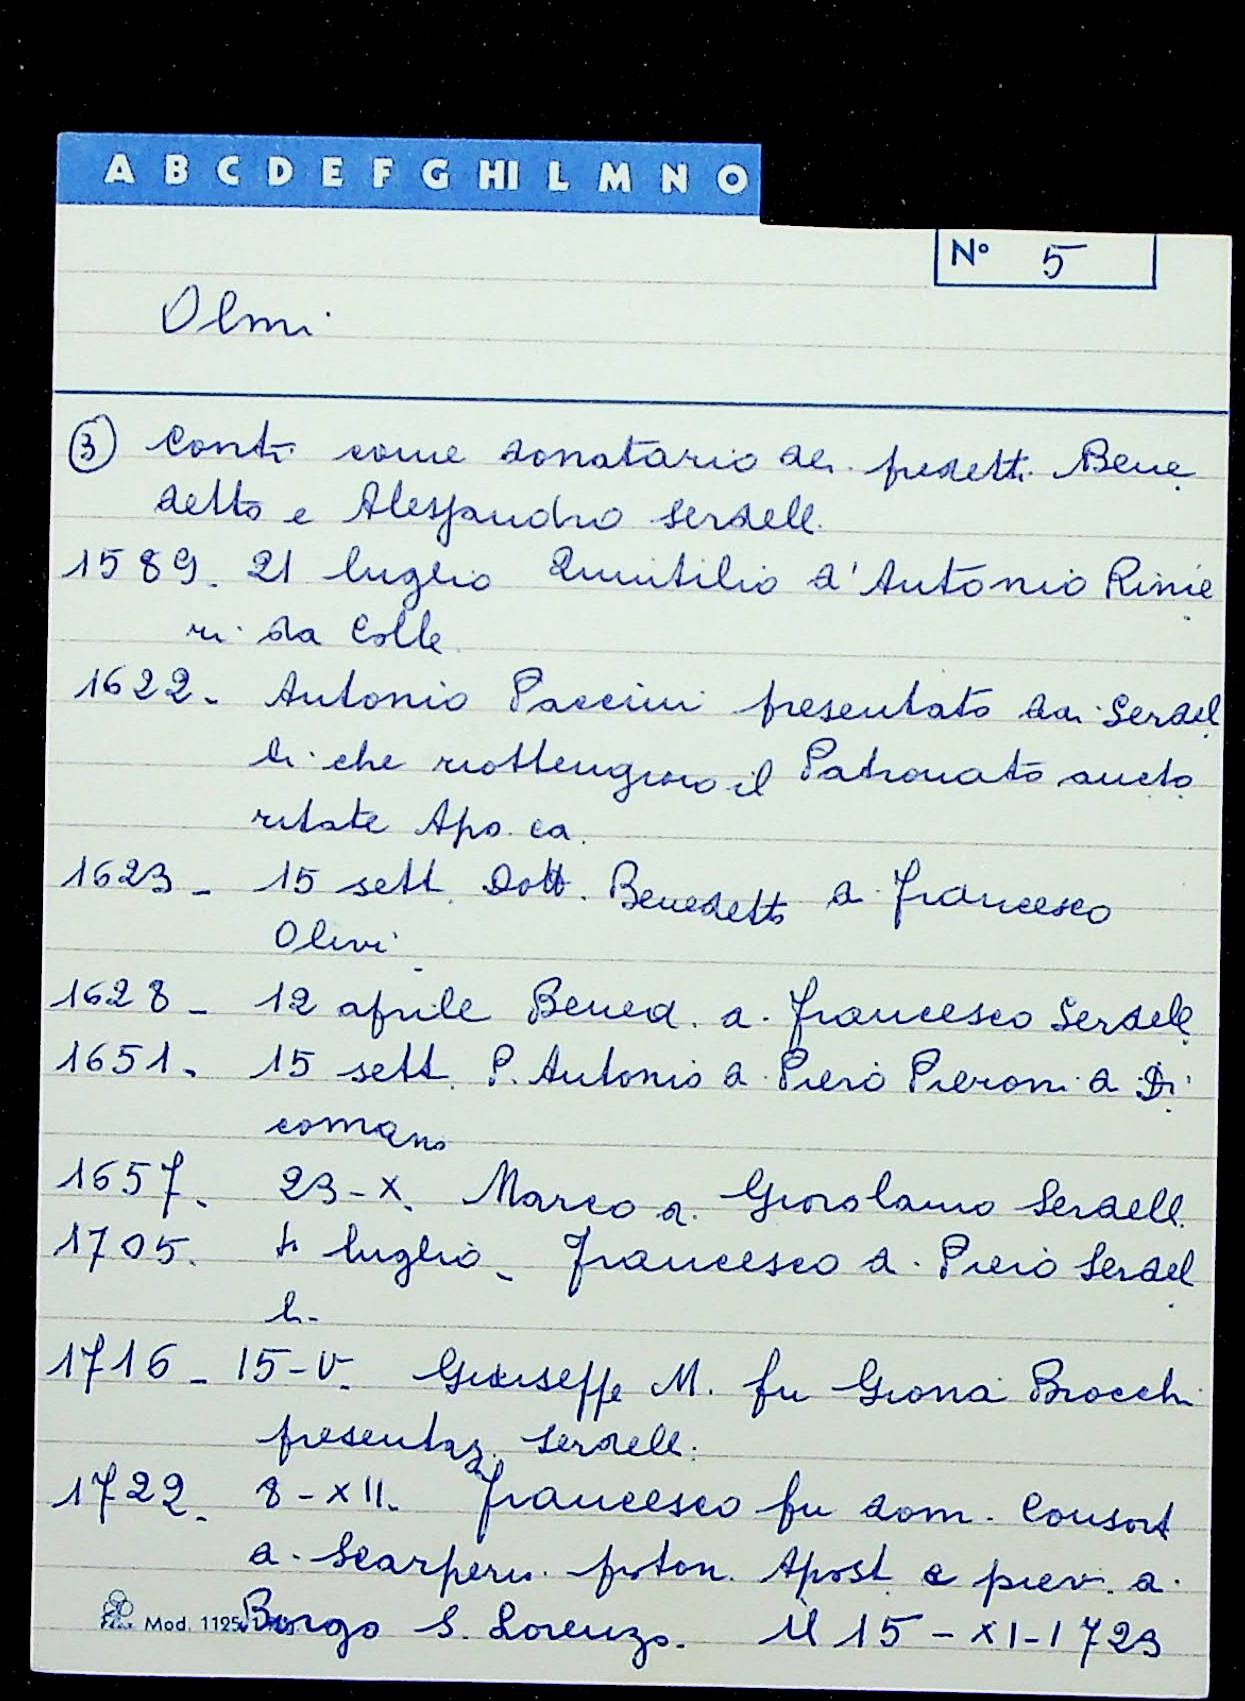 A B C D E F G HI L M N O
N° 5
Olmi
③ Conti come donatario dei predetti Bene
detto e Alessandro Serdelli
1589. 21 luglio Quintilio d'Antonio Rinie
ri da Colle
1622. Antonio Paccini presentato dai Serdel
li che riottengono il Patronato aucto
ritate Apo.ca.
1623 - 15 sett. Dott. Benedetto di Francesco
Olivi
1628 - 12 aprile Bened. di Francesco Serdelli
1651. 15 sett. P. Antonio di Piero Pieroni di Di
comano
1657. 23-X. Marco di Girolamo Serdelli
1705. 4 luglio - Francesco di Piero Serdel
li.
1716 - 15-V. Giuseppe M. fu Giona Brocchi
presentaz. Serdelli.
1722. 8-XII. Francesco fu Dom. Consorti
di Scarperia proton. Apost. e piev. di
Mod. 1125 Borgo S. Lorenzo. M 15-XI-1723